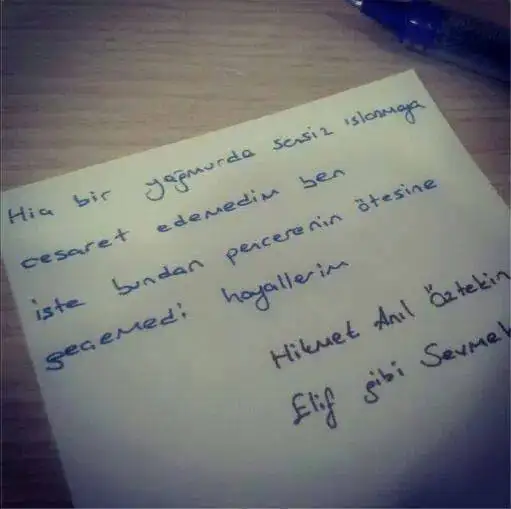 Hiç bir yağmurda sensiz ıslanmaya
cesaret edemedim ben
işte bundan pencerenin ötesine
geçemedi hayallerim
Hikmet Anıl Öztekin
Elif gibi Sevmek